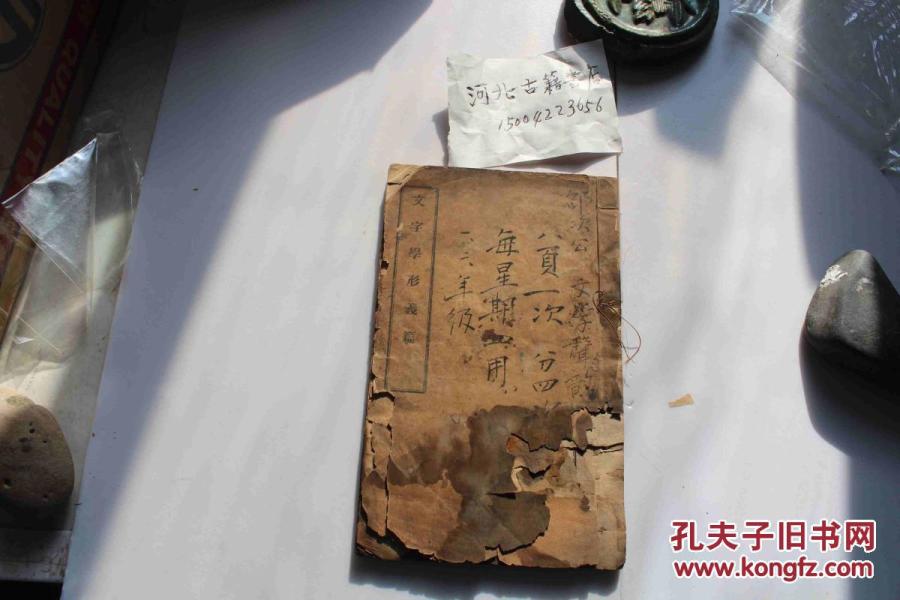 QUALITY
河北古籍书店
15004223656
文字學形義篇
八頁一次 分四
每星期一用
一、二、年级
文學聲
孔夫子旧书网
www.kongfz.com